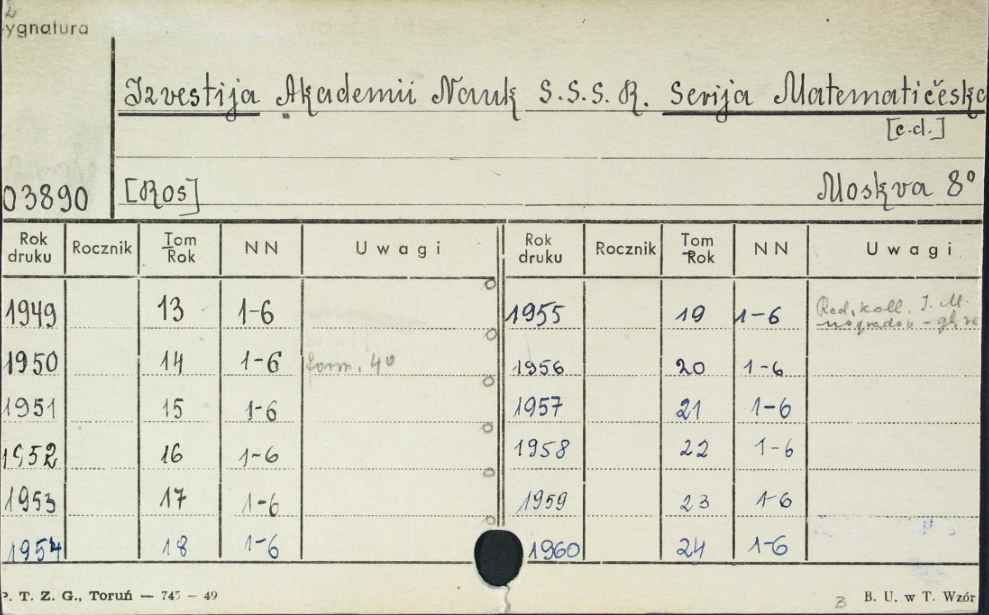 ygnatura
Izvestija Akademii Nauk S.S.S.R. Serija Matematičesk
[c.d.]
03890 [Ros] Moskva 8°
Rok druku Rocznik Tom Rok NN Uwagi Rok druku Rocznik Tom Rok NN Uwagi
1949 13 1-6 1955 19 1-6 Red. koll. I. M.
nogradov - gł. re
1950 14 1-6 form. 4° 1956 20 1-6
1951 15 1-6 1957 21 1-6
1952 16 1-6 1958 22 1-6
1953 17 1-6 1959 23 1-6
1954 18 1-6 1960 24 1-6
P. T. Z. G., Toruń — 745 — 49 3 B. U. w T. Wzór